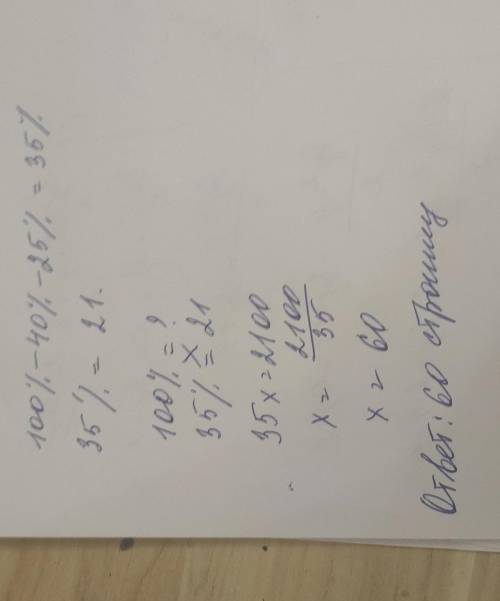 100% - 40% - 25% = 35%
35% = 21.
100% = ?
35% = 21
35x = 2100
x = 2100/35
x = 60
Ответ: 60 страниц